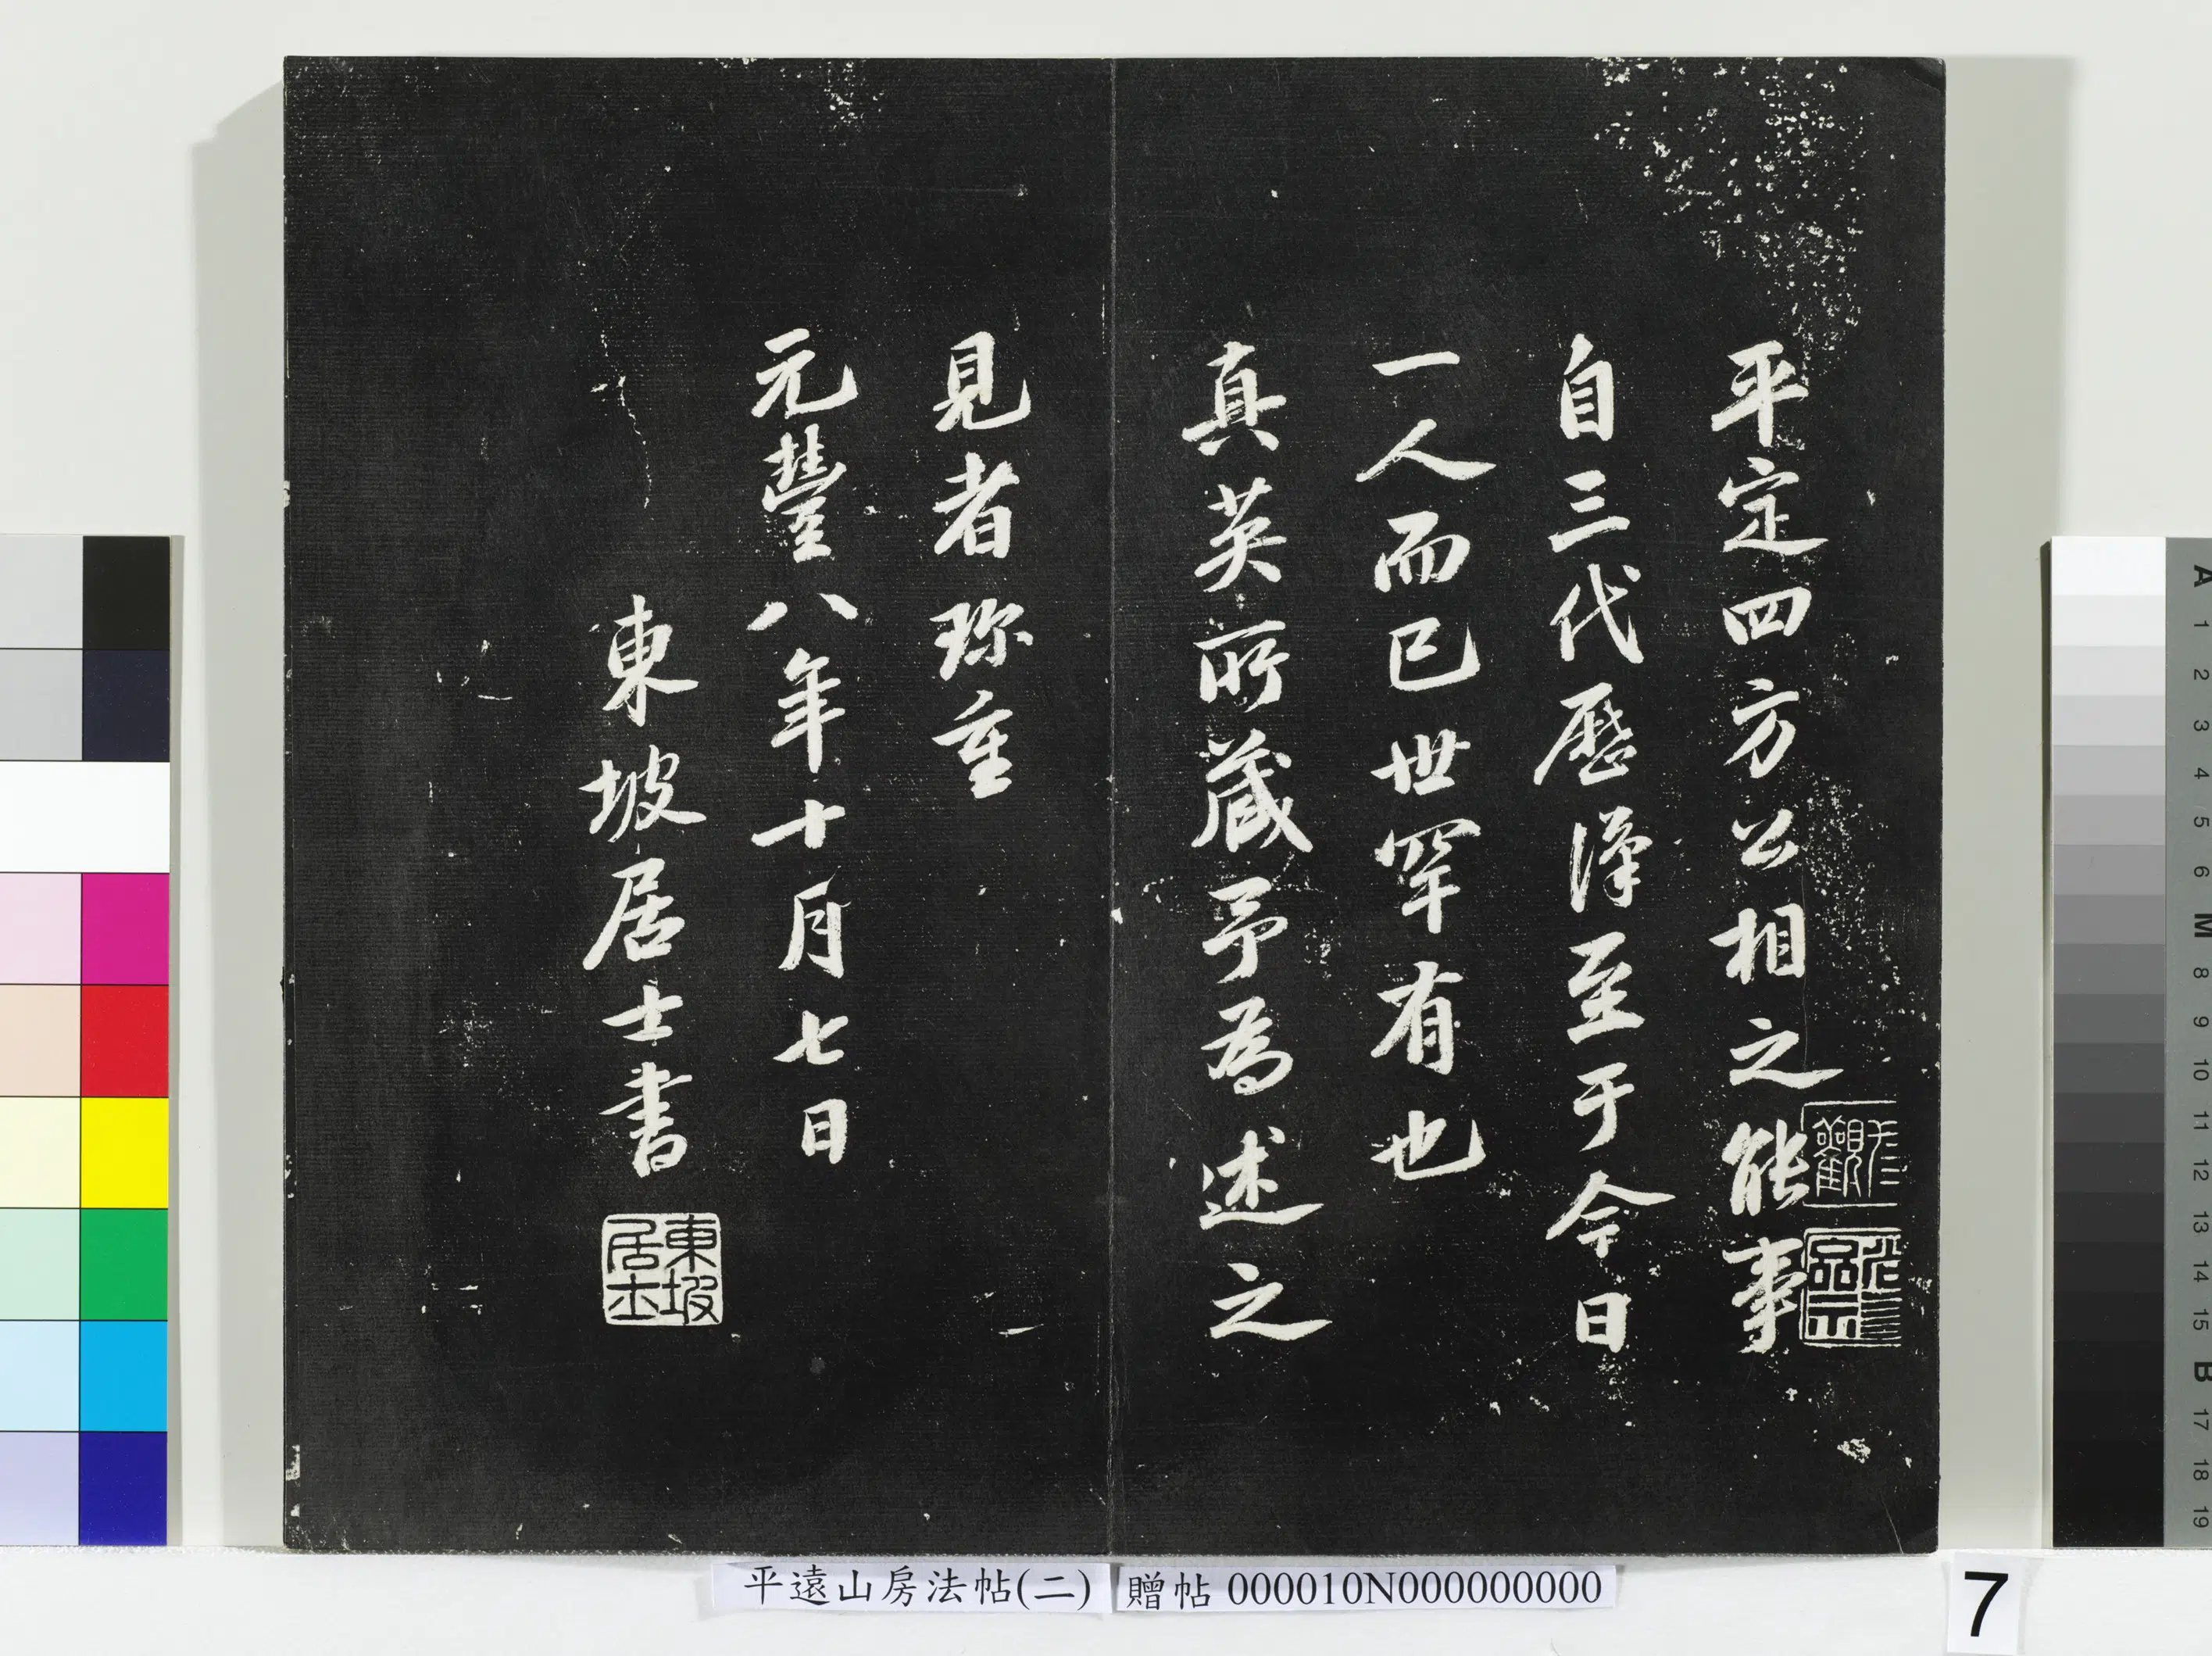 平定四方公相之能事
自三代歷漢至于今日
一人而已世罕有也
真英所藏予為述之
見者珎重
元豐八年十月七日
東坡居士書
東坡居士
平遠山房法帖(二)
贈帖 000010N000000000
7
A 1 2 3 4 5 6 M 8 9 10 11 12 13 14 15 B 17 18 19